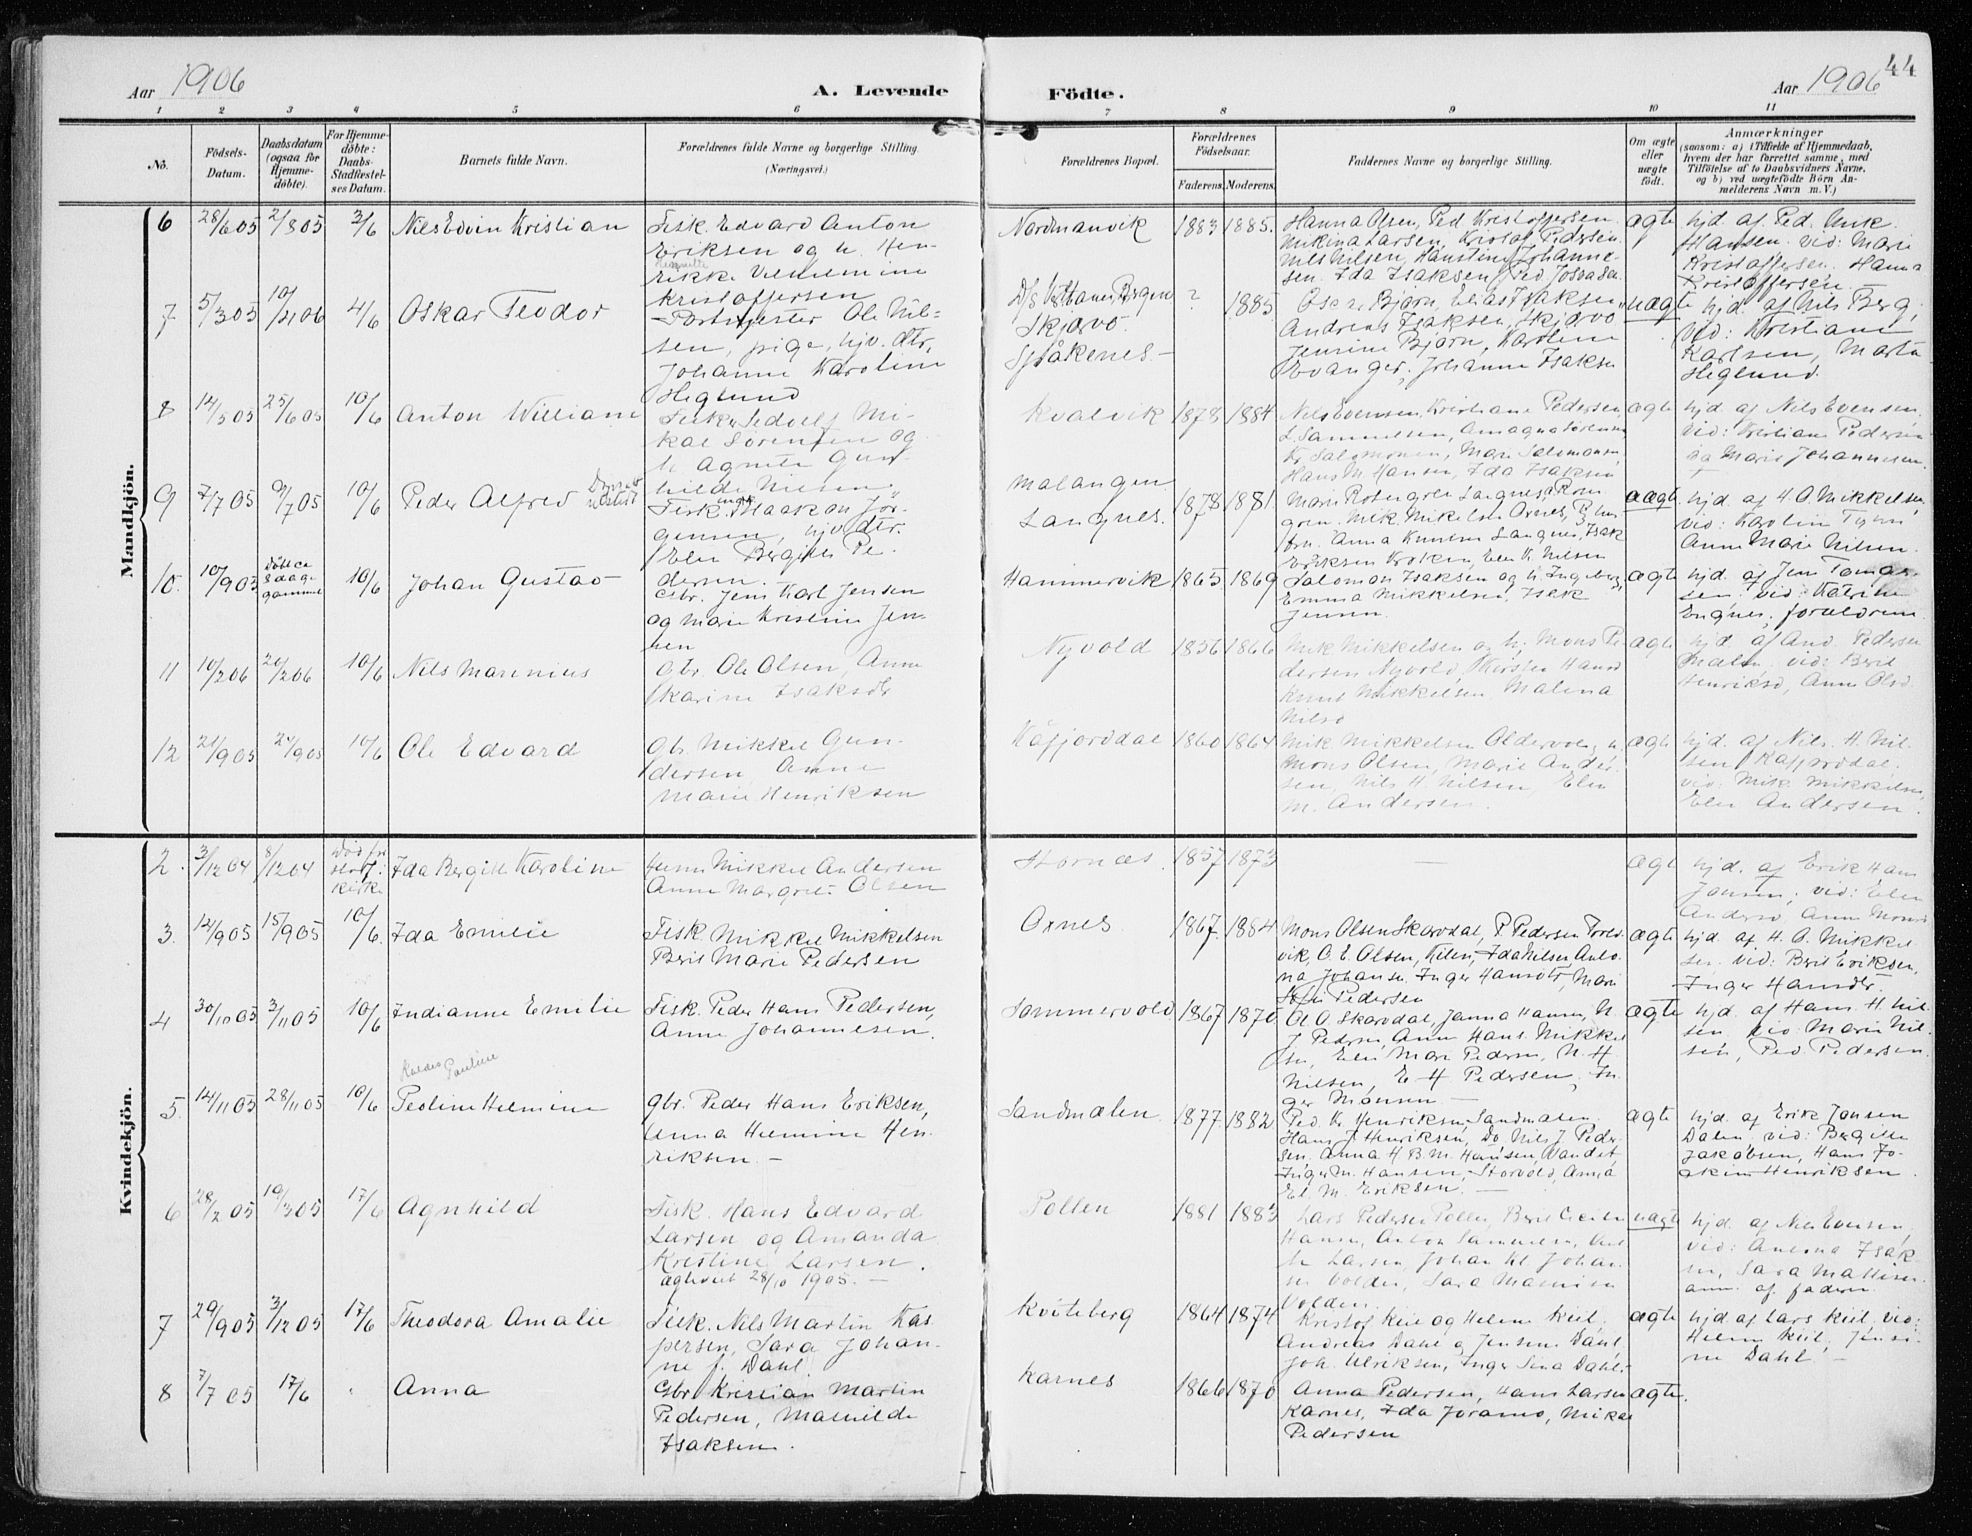 44
Aar 1906
A. Levende
Födte.
Aar 1906
1 2 3 4 5 6 7 8 9 10 11
No.
Födsels-Datum.
Daabsdatum (ogsaa for Hjemmedöbte).
For Hjemmedöbte: Daabs-Stadfæstelses Datum.
Barnets fulde Navn.
Forældrenes fulde Navne og borgerlige Stilling. (Næringsvei.)
Forældrenes Bopæl.
Forældrenes Födselsaar.
Faderens. Moderens.
Faddernes Navne og borgerlige Stilling.
Om ægte eller uægte födt.
Anmærkninger
(saasom: a) i Tilfælde af Hjemmedaab, hvem der har forrettet samme, med Tilföielse af to Daabsvidners Navne, og b) ved uægtefödte Börn Anmelderens Navn m. V.)
Mandkjön.
6 28/6 05 2/8 05 3/6 Nils Edvin Kristian
Fisk. Edvard Anton
Eriksen og h. Hen-
rikke Vilhelmine
Kristoffersen
Nordmanvik 1883 1885.
Hanna Olsen, Ped. Kristoffersen
Mikina Larsen, Kristof Pedersen
Nils Nilsen, Hanstine Johanne-
sen. Ida Isaksen, Ped. Josvasen
ægte
hjd. af Ped. Mik.
Hansen. vid: Marie
Kristoffersen. Hanna
Kristoffersen.
7 5/3 05 10/4 06 4/6 Oskar Teodor
Ole Nil-
sen, pige, hjv. dtr,
Johanne Karoline
Heglund
Skjærvø.
Spåkenes.
? 1885
Bjørn, Elias Isaksen
Andreas Isaksen, Skjærvø
Jensine Bjørn, Karoline
Evanger, Johanne Isaksen
uægte
hjd. af Nils Berg,
vid: Kristiane
Karlsen, Marta
Heglund.
8 14/5 05 25/6 05 10/6 Anton William
Mi-
kal Sørensen og
h. Agnete Gun-
hilde Nilsen
Kvalvik 1878 1884
Nils Evensen, Kristiane Pedersen
L. Samuelsen,
Kr. Salomonsen, Marie Salomonsen
Hans M. Hansen, Ida Isaksen
ægte
hjd. af Nils Evensen.
vid: Kristiane Pedersen
og Marie Johannesen.
9 7/7 05 9/7 05 10/6 Peder Alfred
Fisk. Haakon Jör-
gensen, hjv. dtr.
Elen Bergitte Pe-
dersen.
Malangen
Langnes. 1878 1881.
uægte
hjd. af H. O. Mikkelsen
vid: Karolin
Anne Marie Nilsen.
10. 10/9 05 Döbt ca 8 dage gammel 10/6 Johan Gustav
Gbr. Jens Karl Jensen
og Marie Kristine Jen-
sen
Hammervik 1865 1869
Salomon Isaksen og h. Ingeborg,
Emma Mikkelsen, Isak
Jensen.
ægte
hjd. af Jens Tomas-
sen. vid: Katrine
Engnes, forældrene
11 10/2 06 20/2 06 10/6 Nils Marenius
Gbr. Ole Olsen, Anne
Karine Isaksdtr
Nyvold 1856 1866
Mik Mikkelsen og h., Mons Pe-
dersen Nyvold, Kirsten Hansd
Knut Mikkelsen, Malena
Nilsd
ægte
hjd. af And. Pedersen
Malen. vid: Beril
Henriksd, Anne Olsd.
12 21/9 05 24/9 05 10/6 Ole Edvard
Gbr. Mikkel Gun-
dersen, Anne
Marie Henriksen
Kåfjorddal 1860 1864
Mik Mikkelsen Oldervoll, h.
Mons Olsen, Marie Ander-
sen, Nils H. Nilsen, Elen
M. Andersen.
ægte
hjd. af Nils. H. Nil-
sen Kåfjorddal.
vid: Mik. Mikkelsen,
Elen Andersen.
Kvindekjön.
2. 3/12 04 8/12 04 Ida Bergitte Karoline
Mikkel Andersen
Anne Margrete Olsen
Stornæs. 1857 1873
—
ægte
hjd. af Erik Hans
Jansen, vid: Elen
Andersd, Anne Monsd
3. 12/9 05 15/9 05 10/6. Ida Emilie
Fisk. Mikkel Mikkelsen
Beret Marie Pedersen
Oxnes. 1867 1884
Mons Olsen Skardal, P. Pedersen
vik, O. E. Olsen, Kilen, Ida Nilsen Anto-
na Johansen, Inger Hansdtr, Marie
Pedersen
ægte
hjd. af H. O. Mikkel-
sen. vid: Beril Eriksen,
Inger Hansdtr.
4 30/10 05 3/11 05 10/6 Indianne Emilie
Fisk. Peder Hans Pedersen,
Anne Johannesen.
Sommervold 1867 1870
Ol. O. Skardal, Janna Hansen, N.
J. Pedersen, Anne Hans. Mikkel
sen, Elen Marie Pedersen, N. H.
Nilsen, E. H. Pedersen, In-
ger Monsen. —
ægte
hjd. af Hans H. Nil-
sen, vid: Marie Nil-
sen, Ped. Pedersen.
Kaldes Pauline
5. 14/11 05 28/11 05 10/6 Peoline Helmine
gbr. Peder Hans Eriksen,
Anna Helmine Hen-
riksen. —
Sandmælen. 1877 1882
Ped. Kr. Henriksen Sandmælen.
Hans J. Henriksen, Do, Nils J. Peder-
sen. Anna H. B. M. Hansen,
Inger M. Hansen, Storvold, Anna
El. M. Eriksen. —
ægte
hjd. af Erik Jansen
Dalen. vid: Bergitte
Jakobsen, Hans Jo-
akim Henriksen.
6 28/2 05 19/3 05 17/6 Agnhild
Fisk. Hans Edvard
Larsen og Amanda
Kristine Larsen.
ægteviet 28/10 1905. —
Pollen 1881 1883
Lars Pedersen Pollen, Beril Cecilie
Hansen, Anton Samuelsen,
Larsen, Johan Kl. Johan-
sen Volden, Sara Mathisen
Volden.
uægte
hjd. af Nils Evensen,
vid: Antona Isak-
sen, Sara Mathisen.
anm. af faderen.
7 29/9 05 3/12 05 17/6 Theodora Amalie
Fisk. Nils Martin Kas-
persen, Sara Johan-
ne f. Dahl.
Kviteberg 1864 1874
Kristof Kiil og Helene Kiil,
Andreas Dahl og Jensine Dahl.
Joh. Ulriksen, Inger Lina Dahl.
ægte
hjd af Lars Kiil, vid:
Helene Kiil, Jensi-
ne Dahl. —
8 7/7 05 17/6 Anna
Gbr. Kristian Martin
Pedersen, Mathilde
Isaksen.
Karnes 1866 1870
Anna Pedersen, Hans Larsen
Karnes, Ida Joramo, Mikal
Pedersen
ægte.